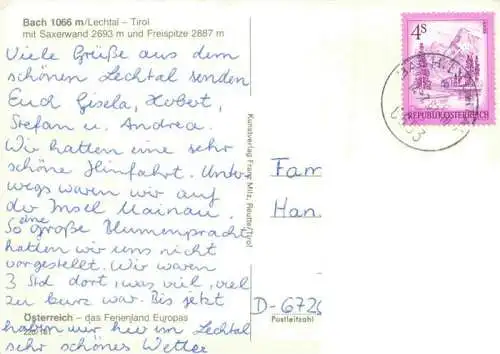 Bach 1066 m/Lechtal – Tirol
mit Saxerwand 2693 m und Freispitze 2887 m
Viele Grüße aus dem
schönen Lechtal senden
Euch Gisela, Hubert,
Stefan u. Andrea.
Wir hatten eine sehr
schöne Hinfahrt. Unter
wegs waren wir auf
der Insel Mainau.
So eine große Blumenpracht
hatten wir uns nicht
vorgestellt. Wir waren
3 Std dort, was viel, viel
zu kurz war. Bis jetzt
Österreich – das Ferienland Europas
haben wir hier im Lechtal
sehr schönes Wetter
Kunstverlag Franz Milz, Reutte/Tirol
4S
REPUBLIK ÖSTERREICH
Fam
Han
D-672
Postleitzahl